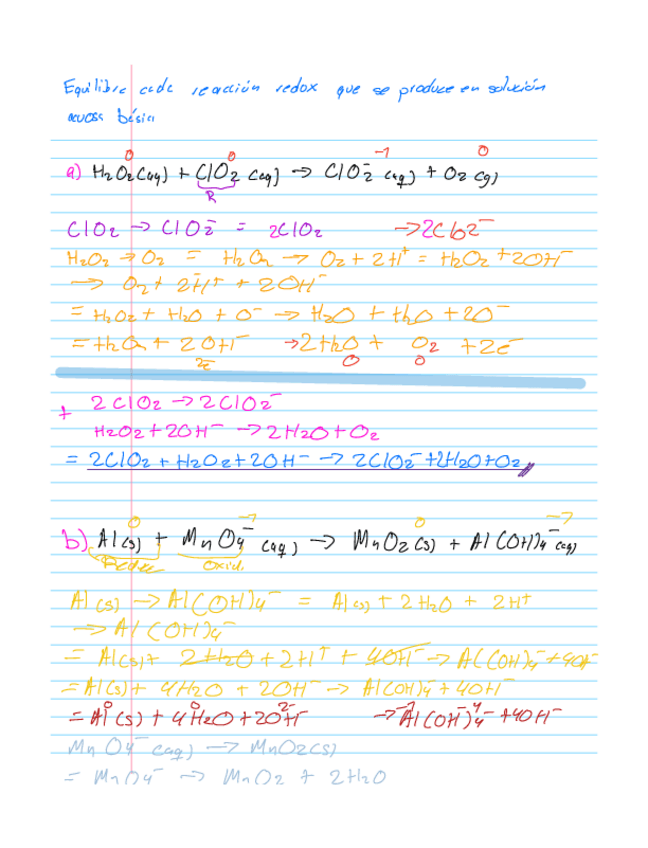 Equilibre cada reacción redox que se produce en solución
acuosa básica
0 0 -1 0
a) H₂O₂(aq) + ClO₂ (aq) → ClO₂⁻ (aq) + O₂ (g)
R
ClO₂ → ClO₂⁻ = 2ClO₂ → 2ClO₂⁻
H₂O₂ → O₂ = H₂O₂ → O₂ + 2H⁺ = H₂O₂ + 2OH⁻
→ O₂ + 2H⁺ + 2OH⁻
= H₂O₂ + H₂O + O⁻ → H₂O + H₂O + 2O⁻
= H₂O₂ + 2OH⁻ → 2H₂O + O₂ + 2e⁻
0 0
+ 2ClO₂ → 2ClO₂⁻
H₂O₂ + 2OH⁻ → 2H₂O + O₂
= 2ClO₂ + H₂O₂ + 2OH⁻ → 2ClO₂⁻ + 2H₂O + O₂
0 -1 0 -1
b) Al(s) + MnO₄⁻ (aq) → MnO₂(s) + Al(OH)₄⁻ (aq)
Oxid.
Al(s) → Al(OH)₄⁻ = Al(s) + 2H₂O + 2H⁺
→ Al(OH)₄⁻
= Al(s) + 2H₂O + 2H⁺ + 4OH⁻ → Al(OH)₄⁻ + 4OH⁻
= Al(s) + 4H₂O + 2OH⁻ → Al(OH)₄⁻ + 4OH⁻
= Al(s) + 4H₂O + 2OH⁻ → Al(OH)₄⁻ + 4OH⁻
MnO₄⁻(aq) → MnO₂(s)
= MnO₄⁻ → MnO₂ + 2H₂O